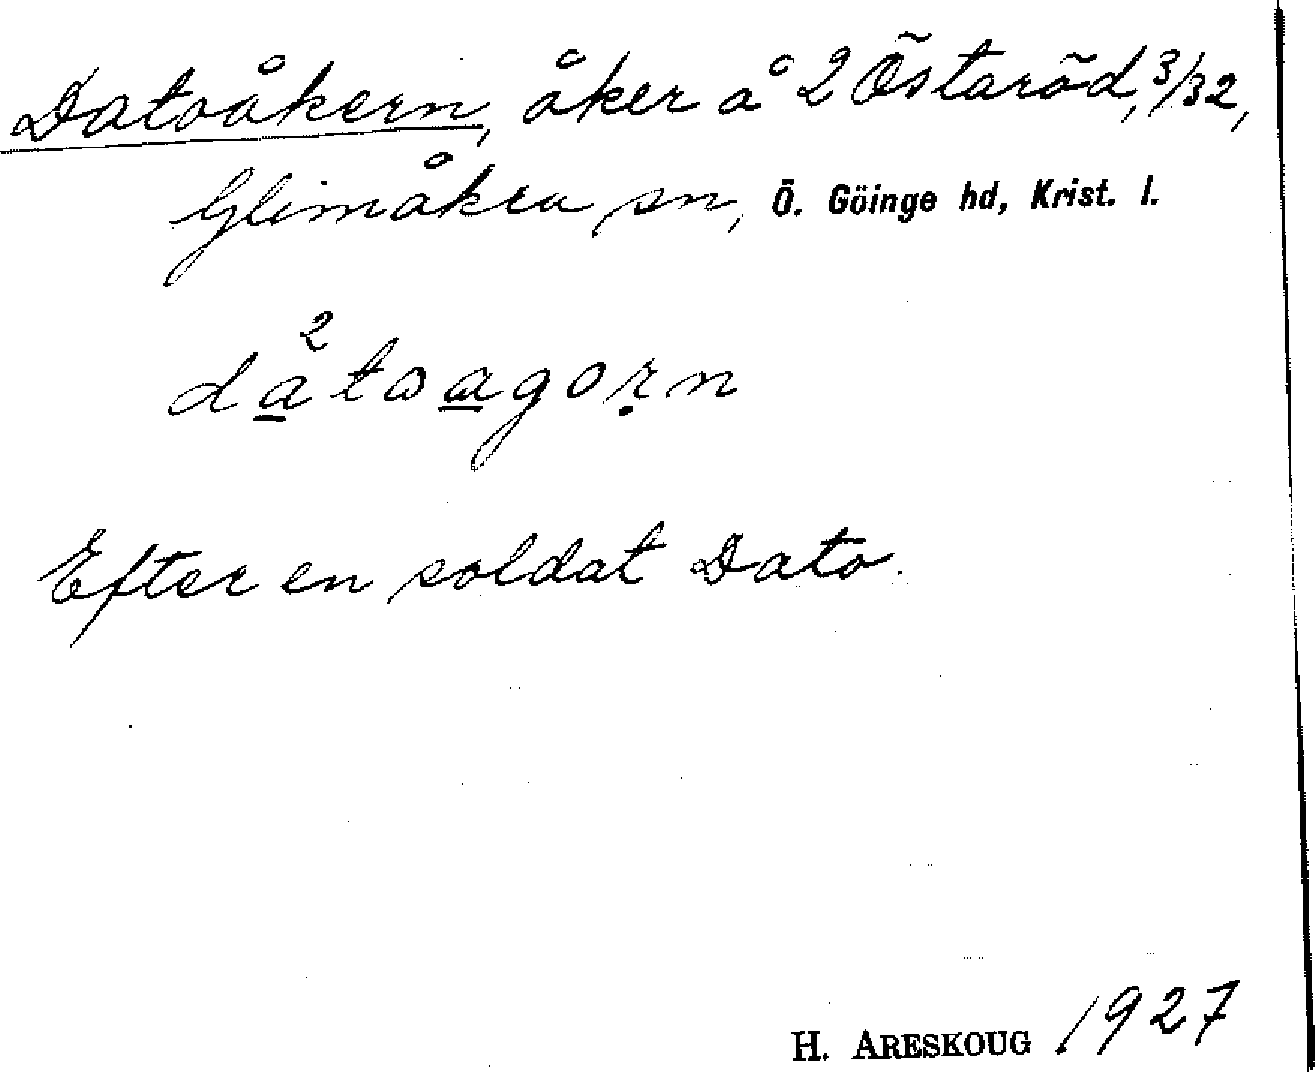 Datoåkern, åker å 2 Östaröd, 3/32,
Glimåkra sn, Ö. Göinge hd, Krist. l.
Efter en soldat Dato.
H. ARESKOUG 1927